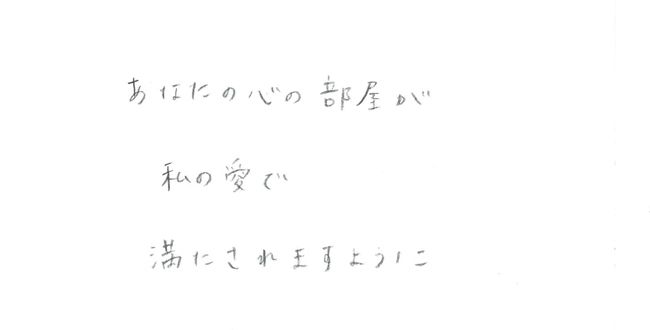 あなたの心の部屋が
私の愛で
満たされますように